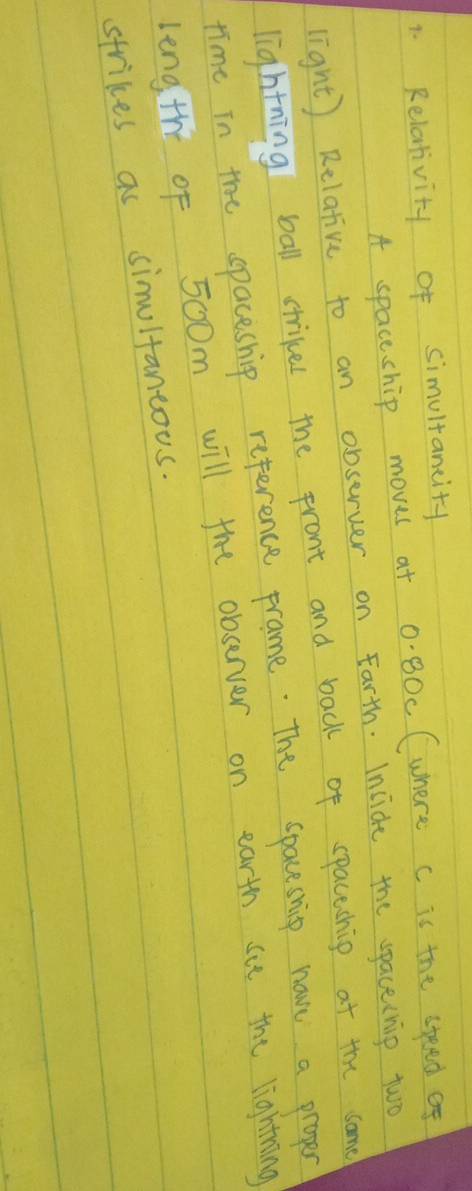 1. Relativity of simultaneity
A spaceship moves at 0.80c (where c is the speed of
light) Relative to an observer on Earth. Inside the spaceship two
lightning ball strikes the front and back of spaceship at the same
time in the spaceship reference frame. The spaceship have a proper
length of 500m will the observer on earth see the lightning
strikes as simultaneous.